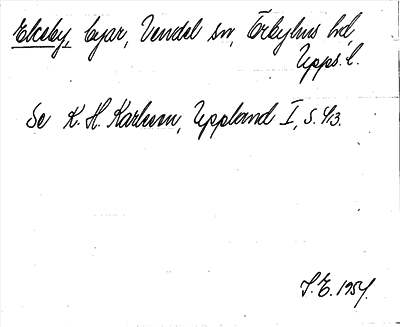 Ekeby, byar, Vendel sn, Örbyhus hd,
Upps. l.
Se K. H. Karlsson, Uppland I, s. 43.
S. E. 1954.